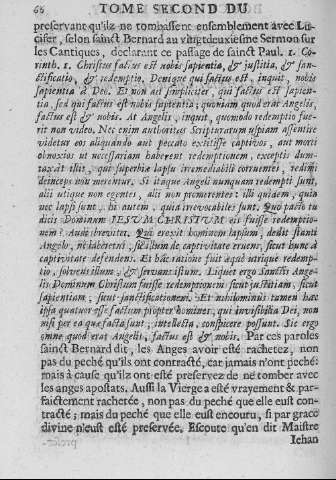 66 TOME SECOND DU
preservant qu'ils ne tombassent ensemblement avec Lu-
cifer, selon sainct Bernard au vingt-deuxiesme Sermon sur
les Cantiques, declarant ce passage de sainct Paul. 1. Co-
rinth. 1. Christus factus est nobis sapientia, & justitia, & san-
ctificatio, & redemptio. Denique qui factus est, inquit, nobis
sapientia à Deo. Et non ait simpliciter, qui factus est sapien-
tia; sed qui factus est nobis sapientia; quoniam quod erat Angelis,
factus est & nobis. At Angelis, inquit, quomodo redemptio fue-
rit non video. Nec enim authoritas Scripturarum uspiam assentire
videtur eos aliquando aut peccato extitisse captivos, aut morti
obnoxios ut necessariam haberent redemptionem, exceptis dum-
taxat illis, qui superbiæ lapsu irremediabili corruentes, redimi
deinceps non merentur. Si itaque Angeli nunquam redempti sunt,
alii utique non egentes, alii non promerentes: illi quidem, quia
nec lapsi sunt, hi autem, quia irrevocabiles sunt; Quo pacto tu
dicis Dominum JESUM CHRISTUM eis fuisse redemptio-
nem? Audi breviter. Qui erexit hominem lapsum, dedit stanti
Angelo, ne laberetur, sic illum de captivitate eruens, sicut hunc à
captivitate defendens. Et hac ratione fuit æquè utrique redemp-
tio, solvens illum, & servans istum. Liquet ergo Sanctis Ange-
lis Dominum Christum fuisse redemptionem sicut justitiam, sicut
sapientiam, sicut sanctificationem. Et nihilominùs tamen hæc
ipsa quatuor esse factum propter homines, qui invisibilia Dei, non
nisi per ea quæ facta sunt, intellecta, conspicere possunt. Sic ergo
omne quod erat Angelis, factus est & nobis. Par ces paroles
sainct Bernard dit, les Anges avoir esté rachetez, non
pas du peché qu'ils ont contracté, car jamais n'ont peché:
mais à cause qu'ils ont esté preservez de ne tomber avec
les anges apostats. Aussi la Vierge a esté vrayement & par-
faictement rachetée, non pas du peché que elle eust con-
tracté; mais du peché que elle eust encouru, si par grace
divine n'eust esté preservée. Escoute qu'en dit Maistre
Jehan